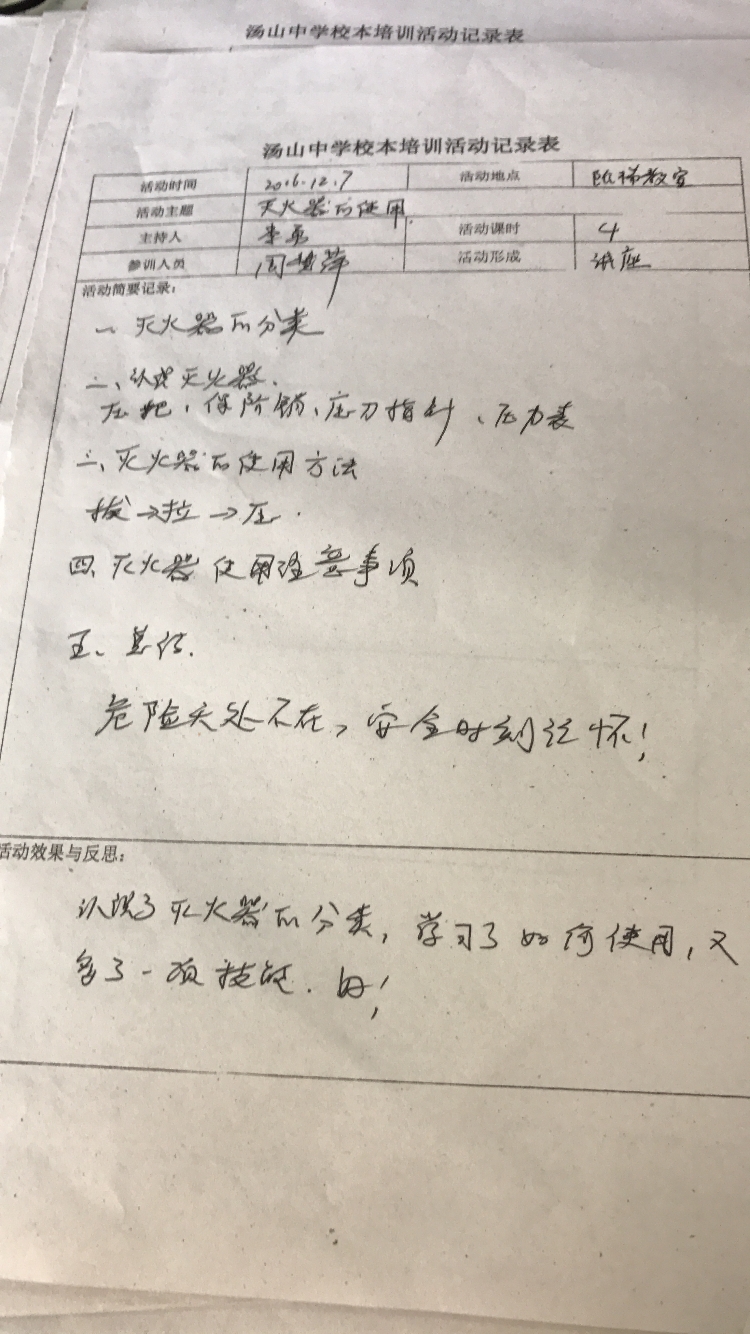 汤山中学校本培训活动记录表
汤山中学校本培训活动记录表
活动时间 2016.12.7 活动地点 阶梯教室
活动主题 灭火器的使用.
主持人 李勇 活动课时 4
参训人员 活动形成 讲座
活动简要记录:
一、灭火器的分类
二、认识灭火器.
压把、保险销、压力指针、压力表
三、灭火器的使用方法
拔→拉→压.
四、灭火器使用注意事项
五、总结.
危险无处不在,安全时刻记怀!
活动效果与反思:
认识了灭火器的分类,学习了如何使用,又
多了一项技能.